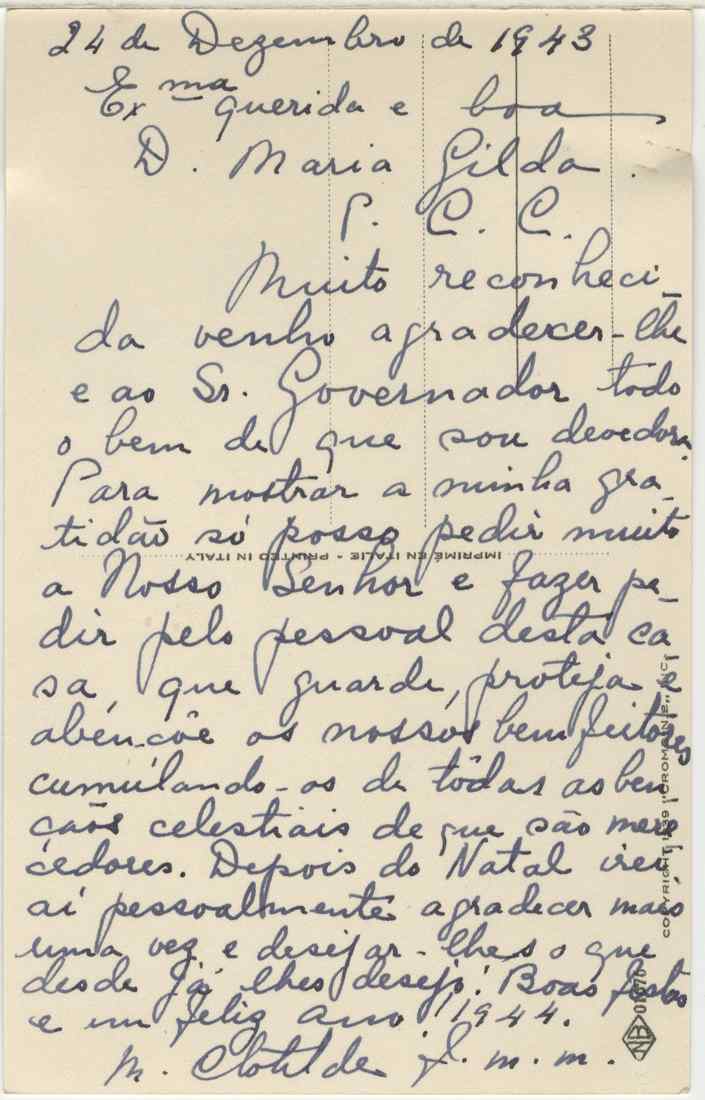 24 de Dezembro de 1943
Exma querida e boa
D. Maria Gilda.
P. C. C.
Muito reconheci-
da venho agradecer-lhe
e ao Sr. Governador todo
o bem de que sou devedora.
Para mostrar a minha gra-
tidão só posso pedir muito
IMPRIMÉ EN ITALIE - PRINTED IN ITALY
a Nosso Senhor e fazer pe-
dir pelo pessoal desta ca-
sa, que guarde, proteja e
abên-côe os nossos bemfeitores
cumúlando-os de tôdas as ben-
çaõs celestiais de que são mere-
cedores. Depois do Natal irei
aí pessoalmente agradecer mais
uma vez e desejar-lhes o que
desde já lhes desejo: Boas festas
e um feliz ano 1944.
M. Clotilde f. m. m.
COPYRIGHT 1939
NB